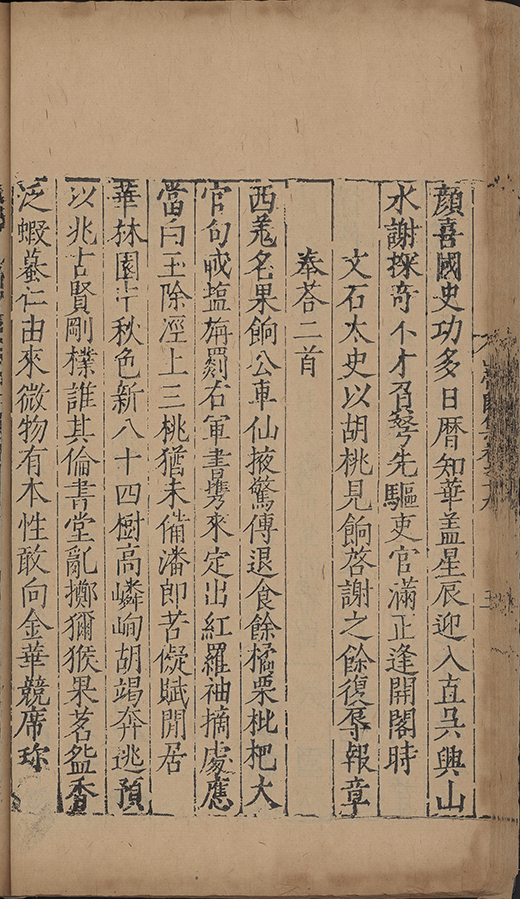 顔喜國史功多日曆知華盖星辰迎入直吳興山
水謝探奇不才負弩先驅吏官滿正逢開閣時
文石太史以胡桃見餉啓謝之餘復辱報章
奉荅二首
西羗名果餉公車仙掖驚傳退食餘橘栗枇杷大
官句戒塩旃罽右軍書㩗來定出紅羅袖摘處應
當白玉除涇上三桃猶未備潘郎苦儗賦閒居
華林園中秋色新八十四樹髙嶙峋胡竭奔逃預
以兆占賢剛樸誰其倫書堂亂擲獼猴果茗盌香
泛蝦蟇仁由來微物有本性敢向金華競席珎